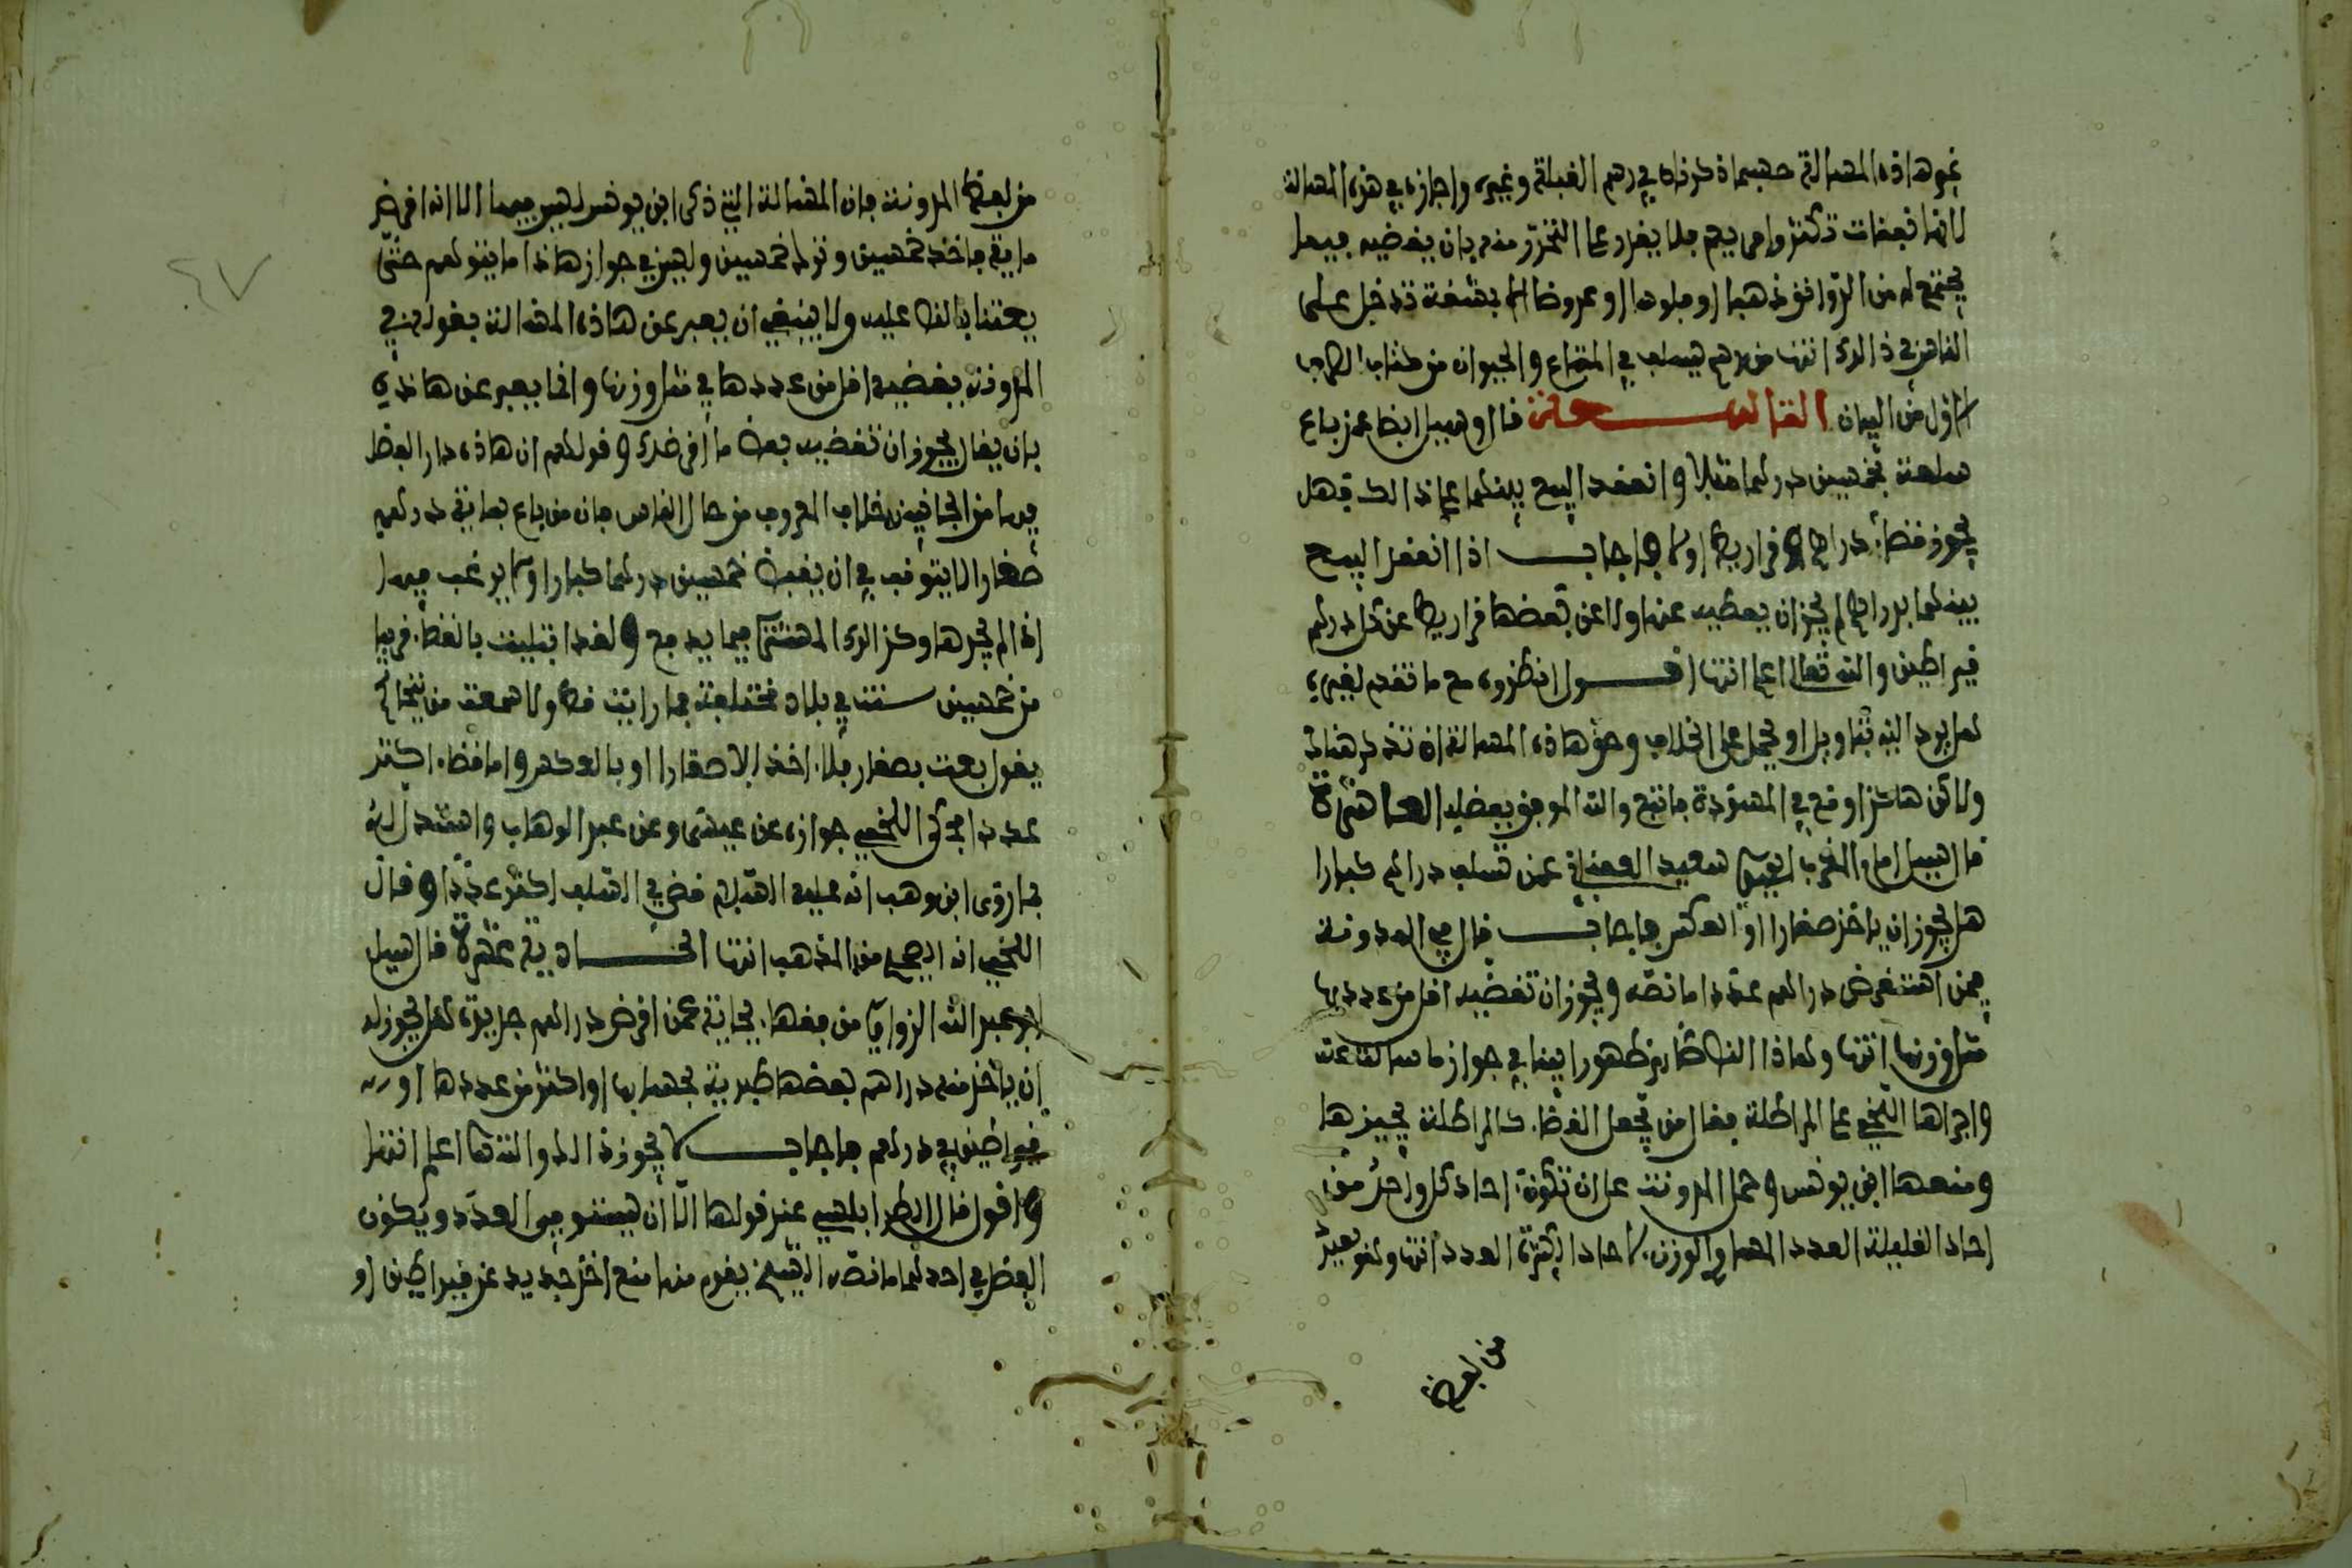 نحو هاذه المسالة حسبما ذكرناه في رسم القبلة وغيره واجازه في هذه المسالة
لانها نفقات تكثر وامر يعم فلا يقدر على التحرز منه بان يقضيه فيها
يجتمع له من الدوانق ذهبا او فلوسا او عروضا الا بمشقة تدخل على
الناس في ذالك انتهى من رسم يسلف في المتاع والحيوان من كتاب الصرف
الاول من البيان التاسعة قال وسيل ايضا عمن باع
سلعة بخمسين درهما مثلا وانعقد البيع بينهما على ذالك فهل
يجوز قضاء دراهم قراريط او لا فاجاب اذا انعقد البيع
بينهما بدراهم لم يجز ان يعطيه عنها ولا عن بعضها قراريط عن كل درهم
قيراطين والله تعالى اعلم انتهى اقول انظره مع ما تقدم لغيره
هل يرد اليه بتاويل او يحمل على الخلاف وحق هاذه المسالة ان تذكر هناك
ولاكن هاكذا وقع في المسودة فاتبع والله الموفق بفضله العاشرة
قال سيل امام المغرب سعيد العقباني عمن تسلف دراهم كبارا
هل يجوز ان ياخذ صغارا او العكس فاجاب قال في المدونة
فيمن استقرض دراهم عددا ما نصه ويجوز ان تقضيه اقل من عددها
مثل وزنها انتهى وهاذا النص كان يظهر لنا في جواز ما سالت عنه
واجراها اللخمي على المراطلة فقال من يجعل القضاء كالمراطلة يجيزها
ومنعها ابن يونس وحمل المدونة على ان تكون احاد كل واحد من
احاد القليلة العدد المساوي الوزن لاحاد الكثيرة العدد انتهى وهو بعيد
من لفظ
٤٧
من لفظ المدونة فان المسالة التي ذكر ابن يونس ليس فيها الا انه اقرض
ماية فاخذ خمسين وترك خمسين وليس في جواز هاذا ما يتوهم حتى
يعتنا بالنص عليه ولا ينبغي ان يعبر عن هاذه المسالة بقوله في
المدونة يقضيه اقل من عددها في مثل وزنها وانما يعبر عن هاذه
بان يقال يجوز ان تقضيه بعض ما اقرضك وقولهم ان هاذه دار الفضل
فيها من الجانبين خلاف المعروف من حال الناس فان من باع بماية درهم
صغارا لا يتوقف في ان يقبض خمسين درهما كبارا ولا يرغب فيها
اذا لم يجدها وكذالك المشتري فيما يدفع ولقد ابتليت بالقضاء قريبا
من خمسين سنة في بلاد مختلفة فما رايت قط ولا سمعت من يتحاكم
يقول بعت بصغار فلا اخذ الا صغارا او بالعكس واما قضاء اكثر
عددا فحكى اللخمي جوازه عن عيسى وعن عبد الوهاب واستدل له
بما روى ابن وهب انه عليه السلام قضى في السلف اكثر عددا وقال
اللخمي انه الصحيح من المذهب انتهى الحادية عشرة قال سيل
ابو عبد الله الزواوي من فقهاء بجاية عمن اقرض دراهم جديدة هل يجوز له
ان ياخذ منه دراهم بعضها طبرية بحسابها او اكثر من عددها او
قيراطين في درهم فاجاب لا يجوز ذالك والله تعالى اعلم انتهى
اقول قال عند قولها الا ان يستوي العدد ويكون
الفضل في احدهما ما نصه الشيخ يقوم منها منع اخذ جديد عن قيراطين او